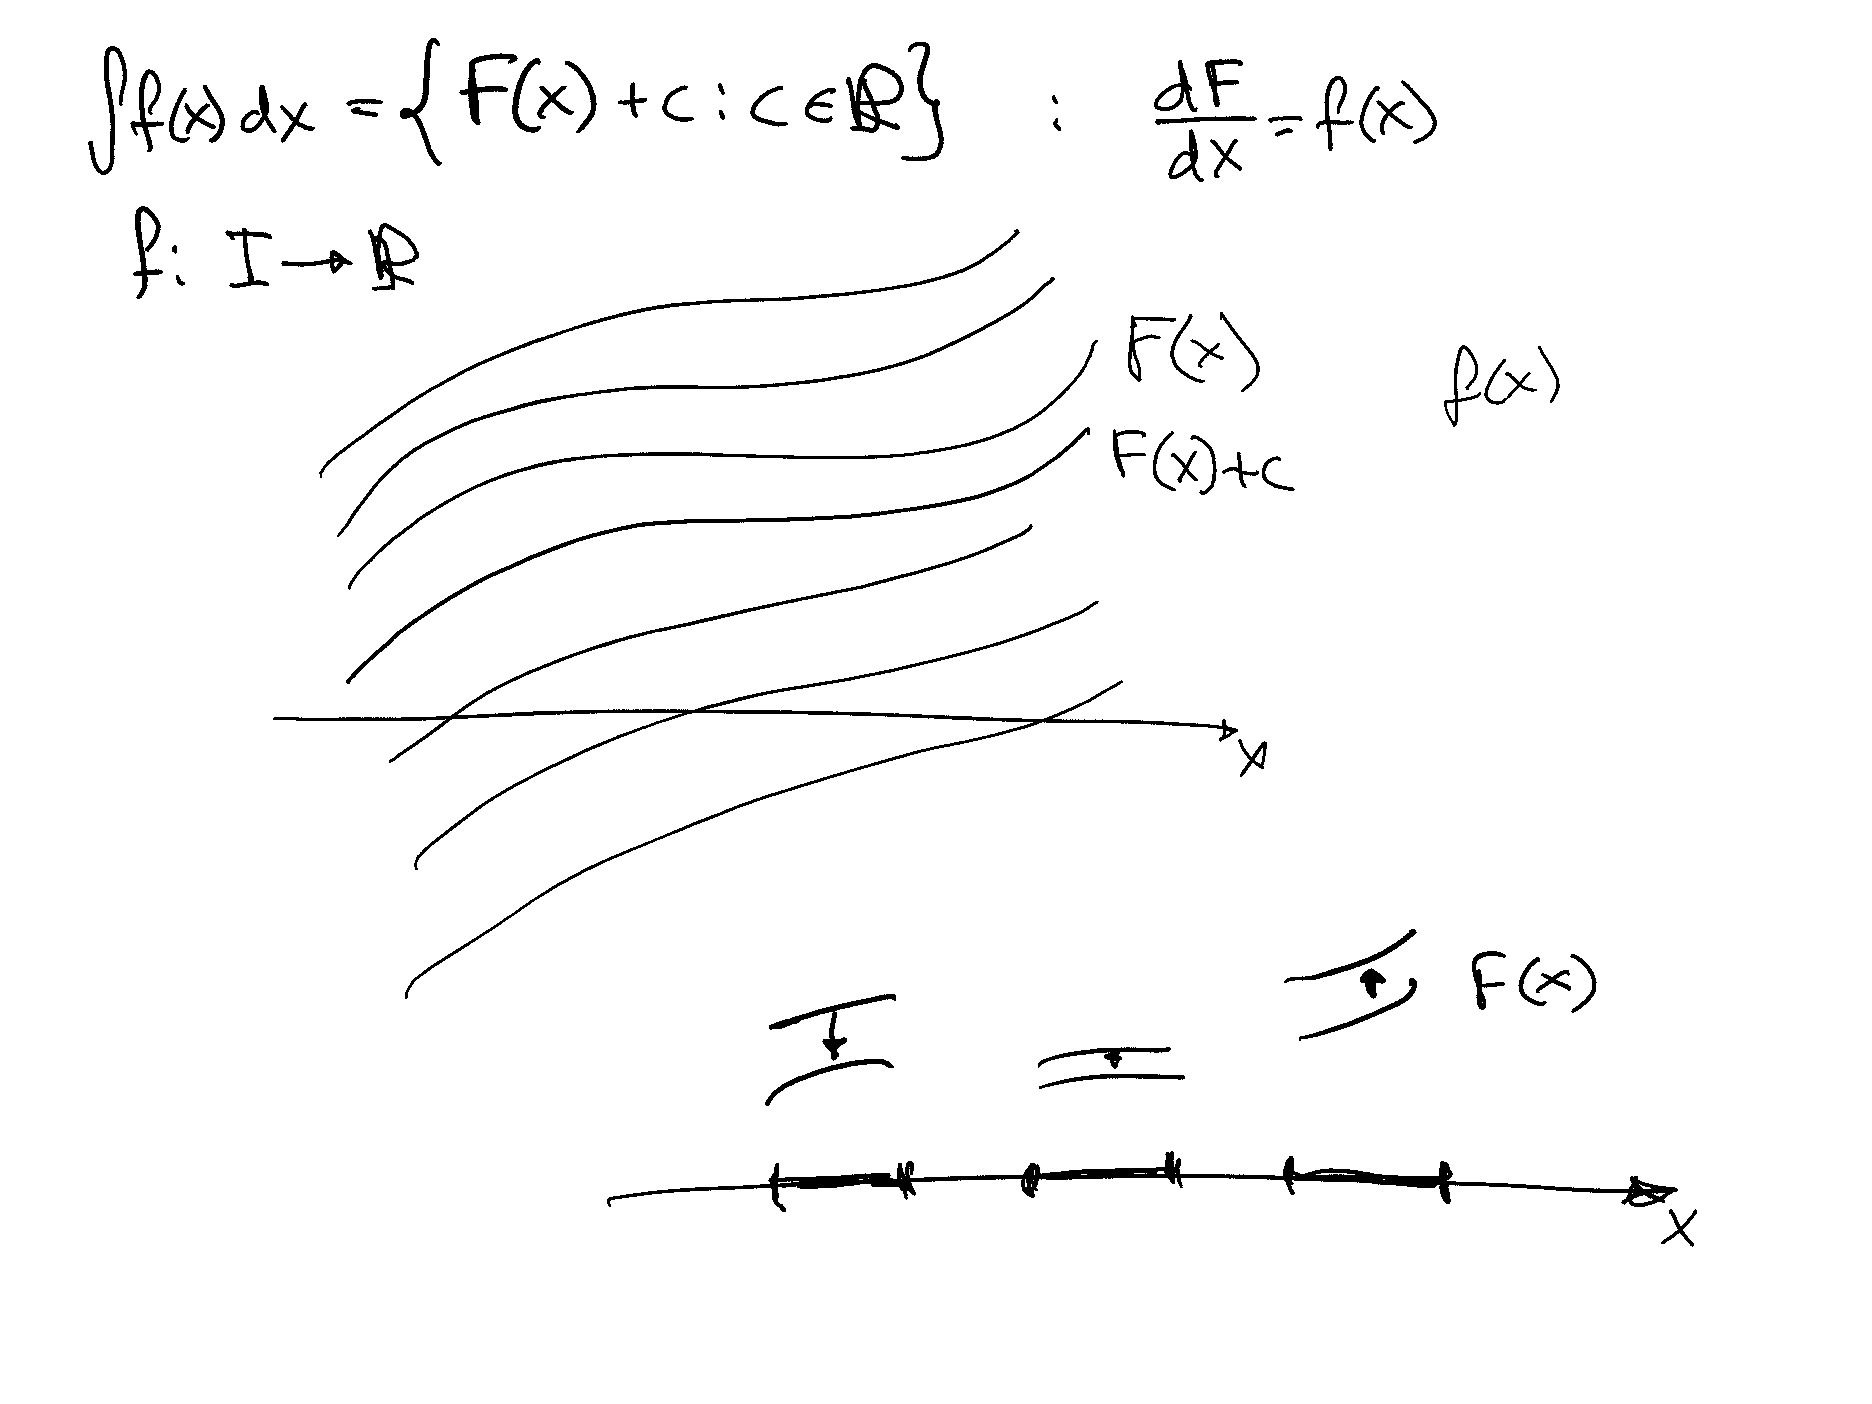 ∫f(x) dx = { F(x) + c : c ∈ ℝ } : dF/dx = f(x)
f: I → ℝ
F(x)
f(x)
F(x)+c
x
F(x)
x